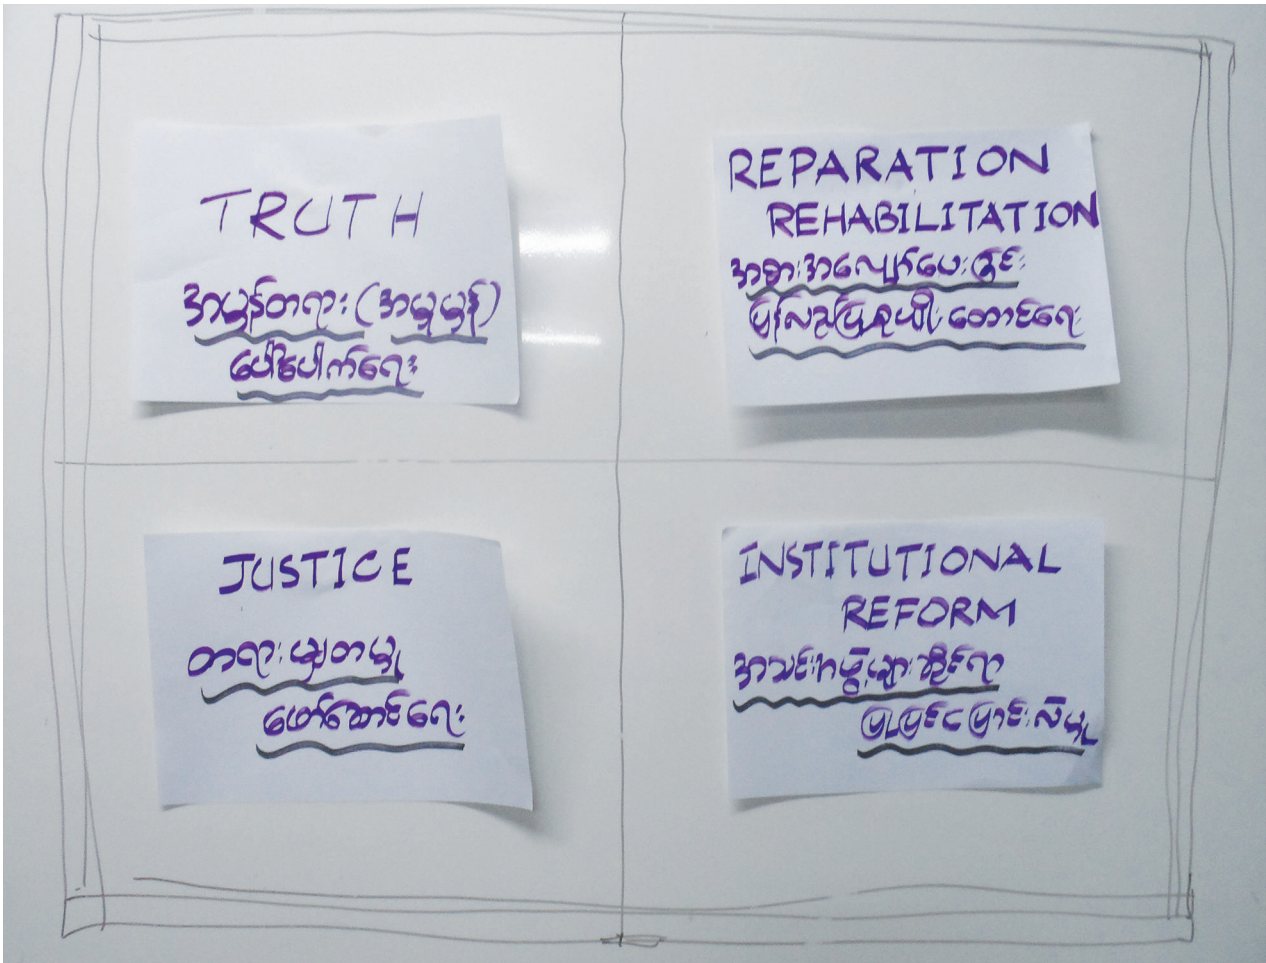 TRUTH
အမှန်တရား (အမှုမှန်)
ပေါ်ပေါက်ရေး
REPARATION
REHABILITATION
အစားအလျော်ပေးခြင်း
ပြန်လည်ပြုစုပျိုးထောင်ရေး
JUSTICE
တရားမျှတမှု
ဖော်ဆောင်ရေး
INSTITUTIONAL
REFORM
အသင်းအဖွဲ့များဆိုင်ရာ
ပြုပြင်ပြောင်းလဲမှု